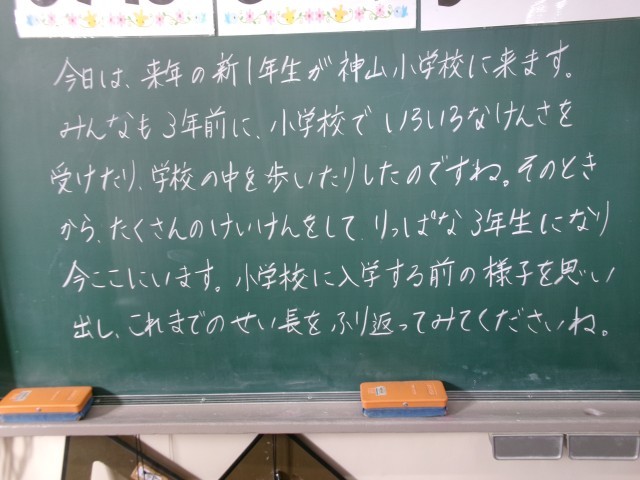 今日は、来年の新1年生が神山小学校に来ます。
みんなも3年前に、小学校でいろいろなけんさを
受けたり、学校の中を歩いたりしたのですね。そのとき
から、たくさんのけいけんをして、りっぱな3年生になり
今ここにいます。小学校に入学する前の様子を思い
出し、これまでのせい長をふり返ってみてくださいね。